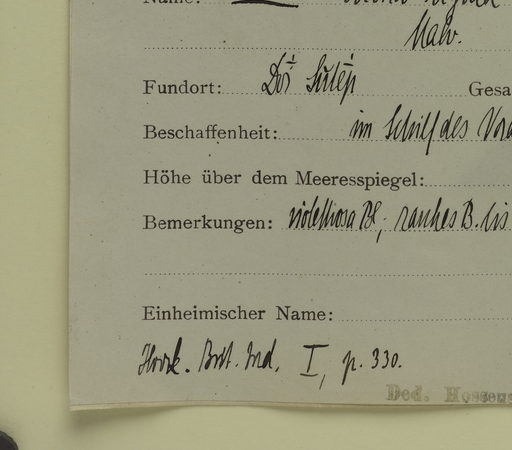 Name:
Malv.
Fundort: Doi Sutep Gesa
Beschaffenheit: im Schilf des Vora
Höhe über dem Meeresspiegel:
Bemerkungen: violettrosa Bl; rauhes B. bis
Einheimischer Name:
Hook. Brit. Ind. I, p. 330.
Ded. Hosseus